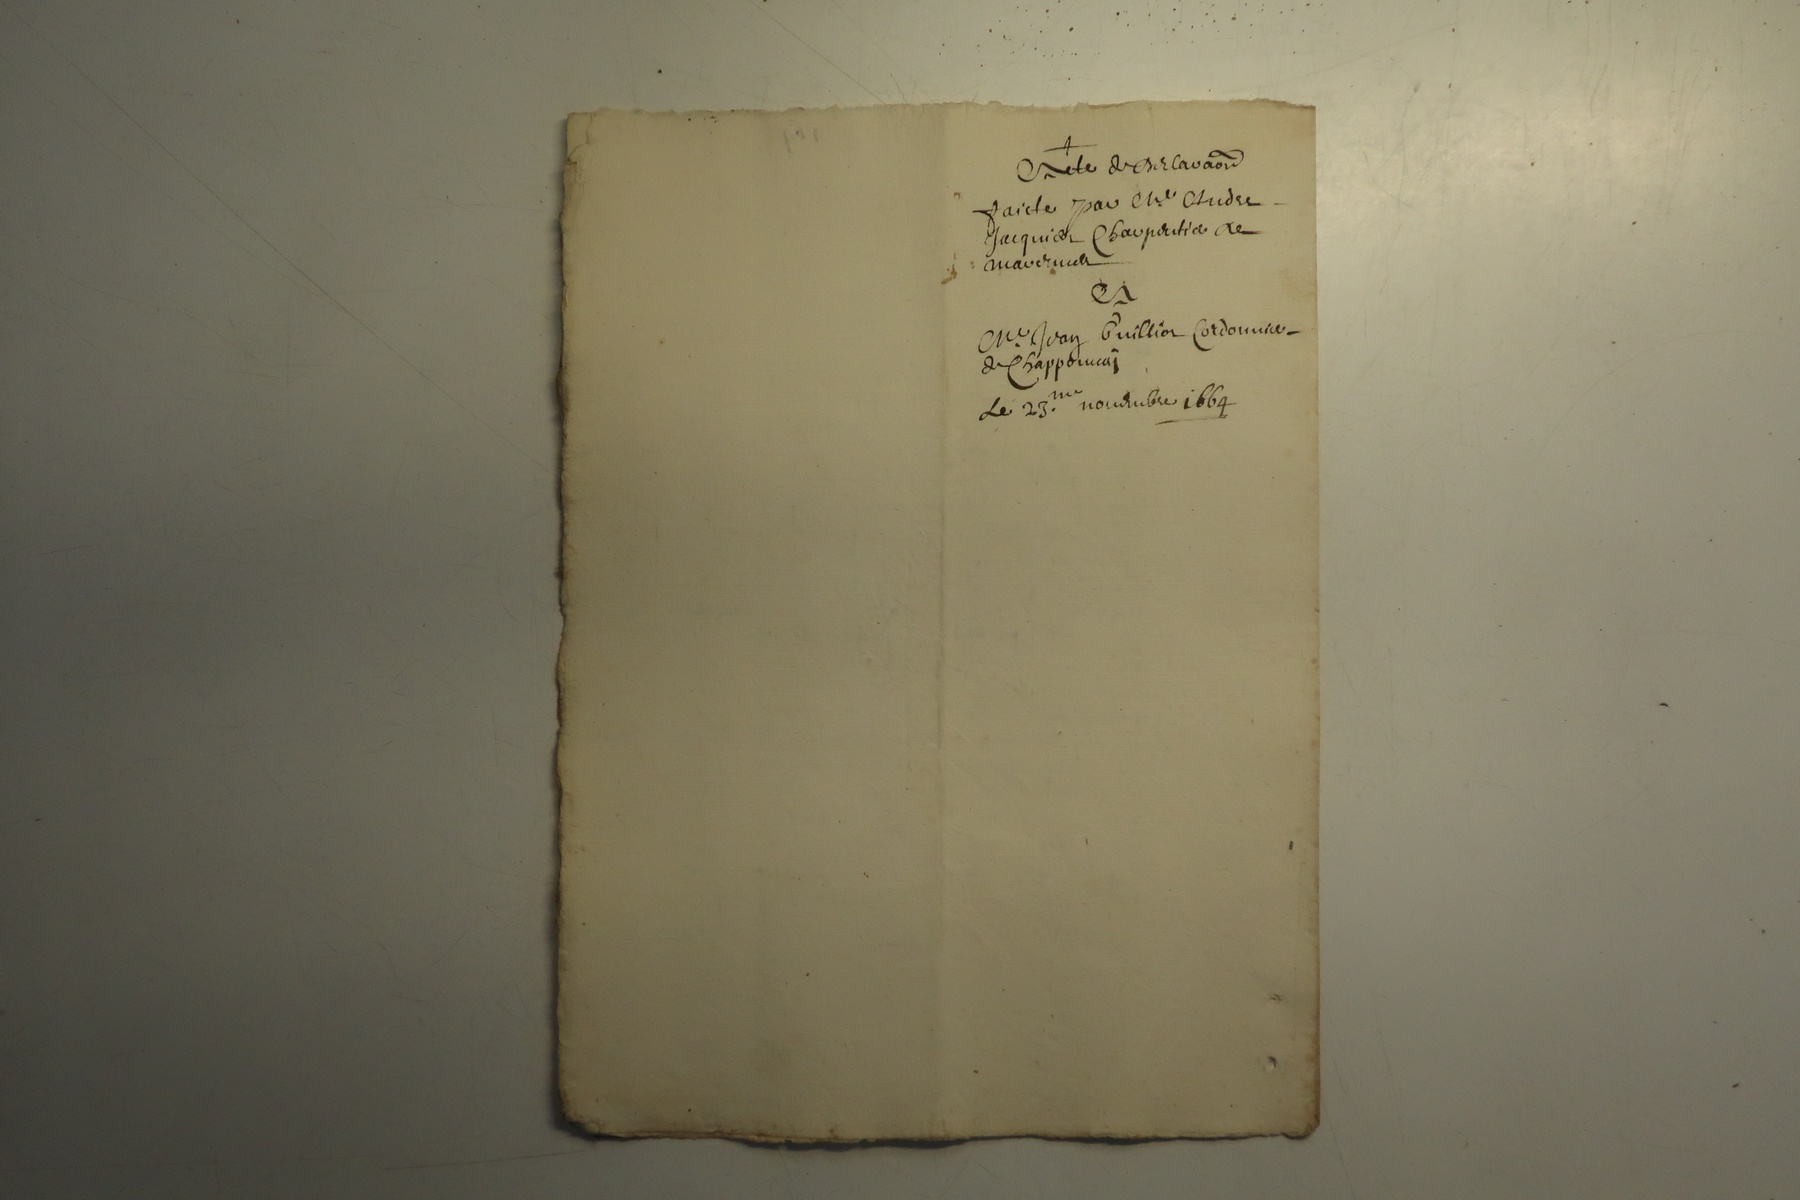 Acte de declaraōn
faicte par Mre Andre
Jacquier Charpentier de
A
Mre Jean Guillion Cordonnier
de Chapponnaj
Le 23.me novembre 1664